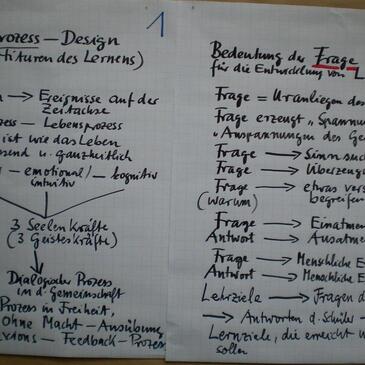 1
rozess – Design
tituren des Lernens)
n → Ereignisse auf der
Zeitachse
zess – Lebensprozess
ist wie das Leben
ssend u. ganzheitlich
– emotional/ – kognitiv
intuitiv
3 Seelenkräfte
(3 Geisteskräfte)
Dialogischer Prozess
in d. Gemeinschaft
Prozess in Freiheit,
Ohne Macht – Ausübung
xions – Feedback – Proze
Bedeutung der Frage
für die Entwicklung von L
Frage = Uranliegen des
Frage erzeugt „Spannun
"Anspannungen des Ge
Frage → Sinnsuch
Frage → Überzeuge
Frage → etwas vers
(warum) begreifen
Frage → Einatmen
Antwort → Ausatme
Frage → Menschliche E
Antwort → Menschliche E
Lehrziele → Fragen d
→ Antworten d. Schüler –
Lernziele, die erreicht w
sollen